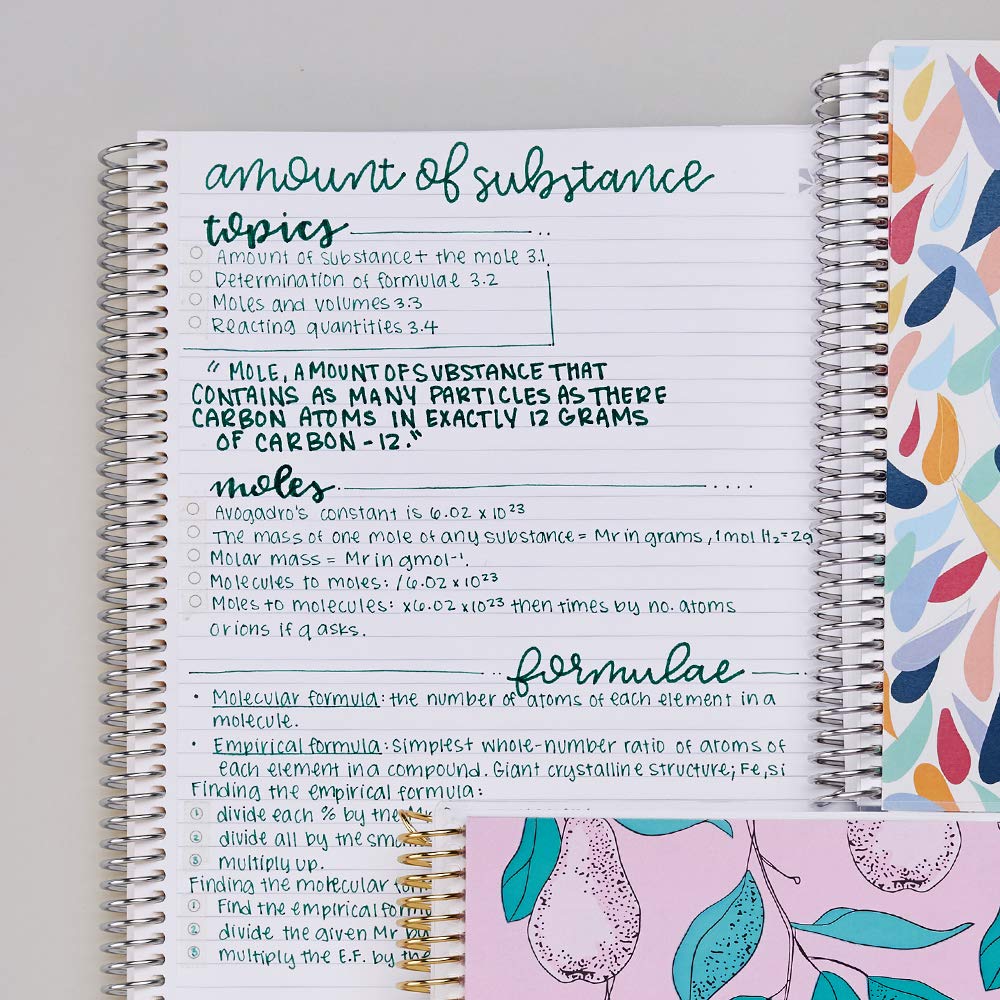 amount of substance
topics
Amount of substance + the mole 3.1.
Determination of formulae 3.2
Moles and volumes 3.3
Reacting quantities 3.4
" MOLE, AMOUNT OF SUBSTANCE THAT
CONTAINS AS MANY PARTICLES AS THERE
CARBON ATOMS IN EXACTLY 12 GRAMS
OF CARBON -12."
moles
Avogadro's constant is 6.02 x 10²³
The mass of one mole of any substance = Mr in grams, 1 mol H₂ = 2g
Molar mass = Mr in gmol⁻¹.
Molecules to moles: /6.02 x 10²³
Moles to molecules: x6.02 x 10²³ then times by no. atoms
or ions if q asks.
formulae
• Molecular formula: the number of atoms of each element in a
molecule.
• Empirical formula: simplest whole-number ratio of atoms of
each element in a compound. Giant crystalline structure; Fe, Si
Finding the empirical formula:
① divide each % by the
② divide all by the
③ multiply up.
Finding the molecular
① Find the empirical
② divide the given Mr by
③ multiply the E.F. by the